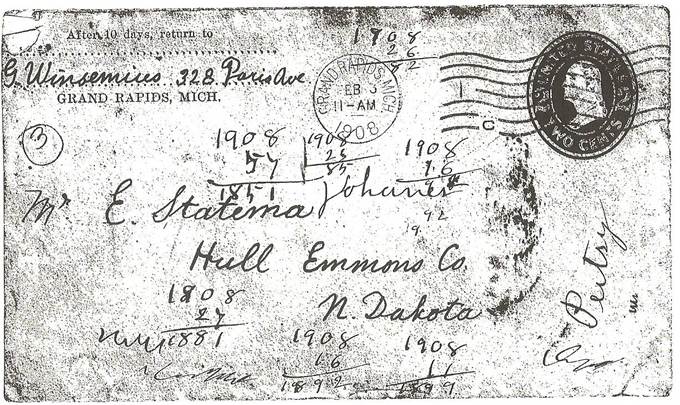 After 10 days, return to
G. Winsemius 328 Paris Ave.
GRAND RAPIDS, MICH.
GRAND RAPIDS, MICH
FEB 3
11-AM
1908
UNITED STATES
TWO CENTS
1908
26
3
1908
57
1851
1908
1908
16
92
Mr E. Statema
Johanes
Hull Emmons Co.
N. Dakota
1908
27
1881
1908
16
1892
1908
11
1899
Peitsy